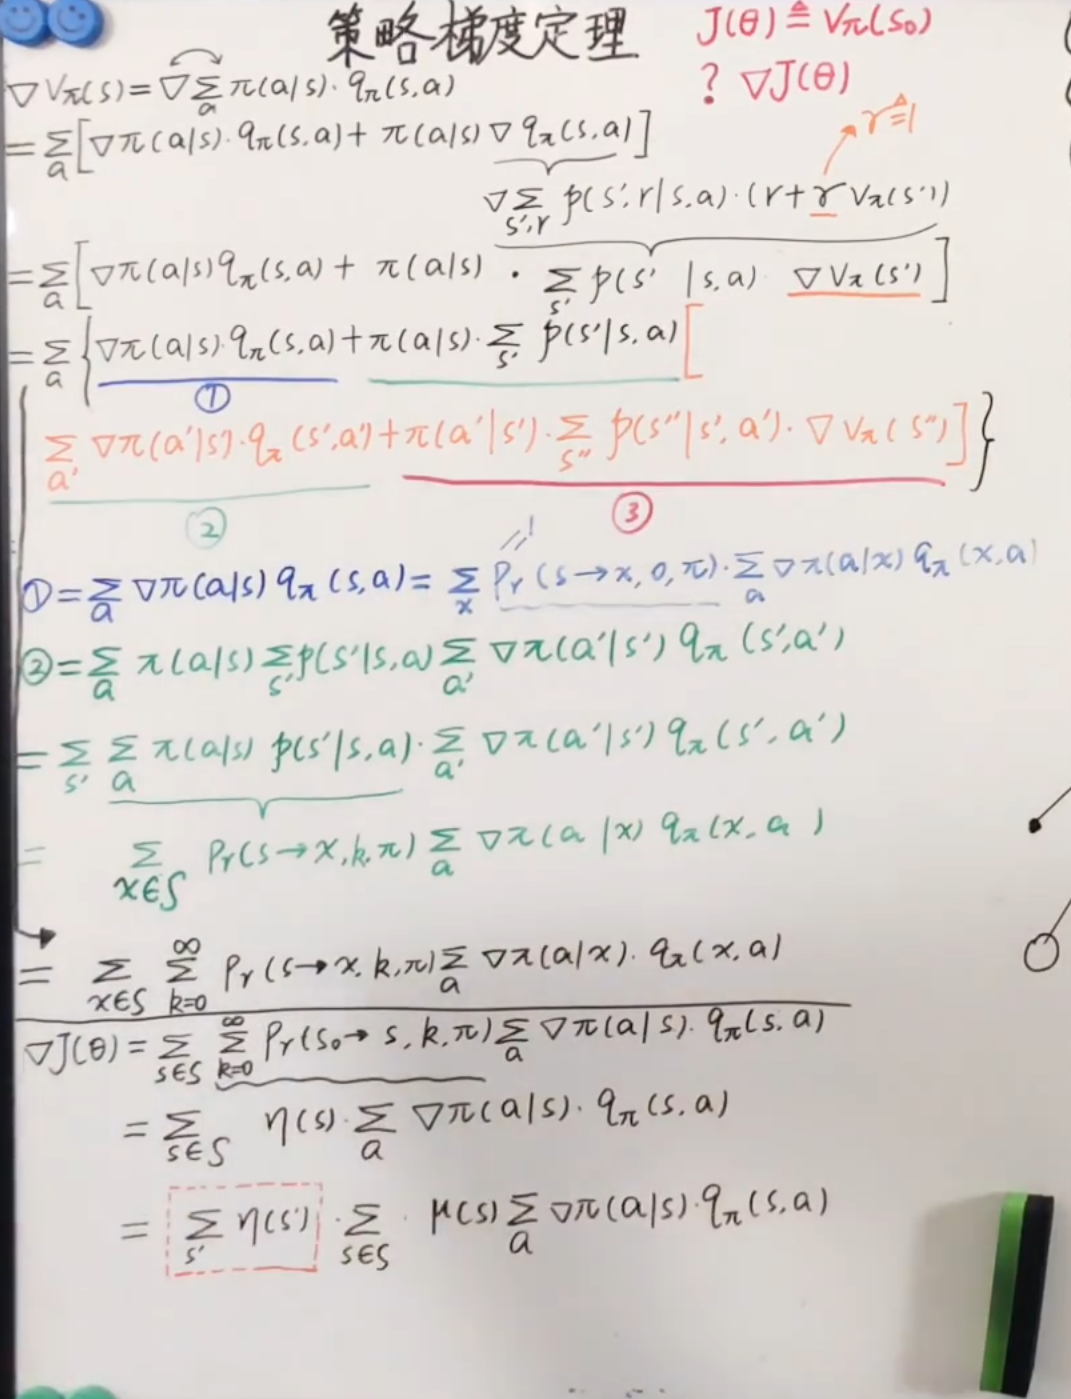 策略梯度定理
J(θ) ≜ Vπ(s₀)
? ∇J(θ)
∇Vπ(s) = ∇ Σ_a π(a|s)·qπ(s,a)
= Σ_a [∇π(a|s)·qπ(s,a) + π(a|s) ∇qπ(s,a)]
γ≜1
∇ Σ_{s',r} p(s',r|s,a)·(r+γVπ(s'))
= Σ_a [∇π(a|s) qπ(s,a) + π(a|s) · Σ_{s'} p(s' |s,a) ∇Vπ(s')]
= Σ_a {∇π(a|s)·qπ(s,a) + π(a|s)·Σ_{s'} p(s'|s,a) [
①
Σ_{a'} ∇π(a'|s')·qπ(s',a') + π(a'|s')·Σ_{s''} p(s''|s',a')·∇Vπ(s'')]}
② ③
=1
① = Σ_a ∇π(a|s) qπ(s,a) = Σ_x Pr(s→x,0,π)·Σ_a ∇π(a|x) qπ(x,a)
② = Σ_a π(a|s) Σ_{s'} p(s'|s,a) Σ_{a'} ∇π(a'|s') qπ(s',a')
= Σ_{s'} Σ_a π(a|s) p(s'|s,a)·Σ_{a'} ∇π(a'|s') qπ(s',a')
= Σ_{x∈S} Pr(s→x,k,π) Σ_a ∇π(a|x) qπ(x,a)
= Σ_{x∈S} Σ_{k=0}^{∞} Pr(s→x,k,π) Σ_a ∇π(a|x)·qπ(x,a)
∇J(θ) = Σ_{s∈S} Σ_{k=0}^{∞} Pr(s₀→s,k,π) Σ_a ∇π(a|s)·qπ(s,a)
= Σ_{s∈S} η(s)·Σ_a ∇π(a|s)·qπ(s,a)
= Σ_{s'} η(s')·Σ_{s∈S}·μ(s) Σ_a ∇π(a|s)·qπ(s,a)